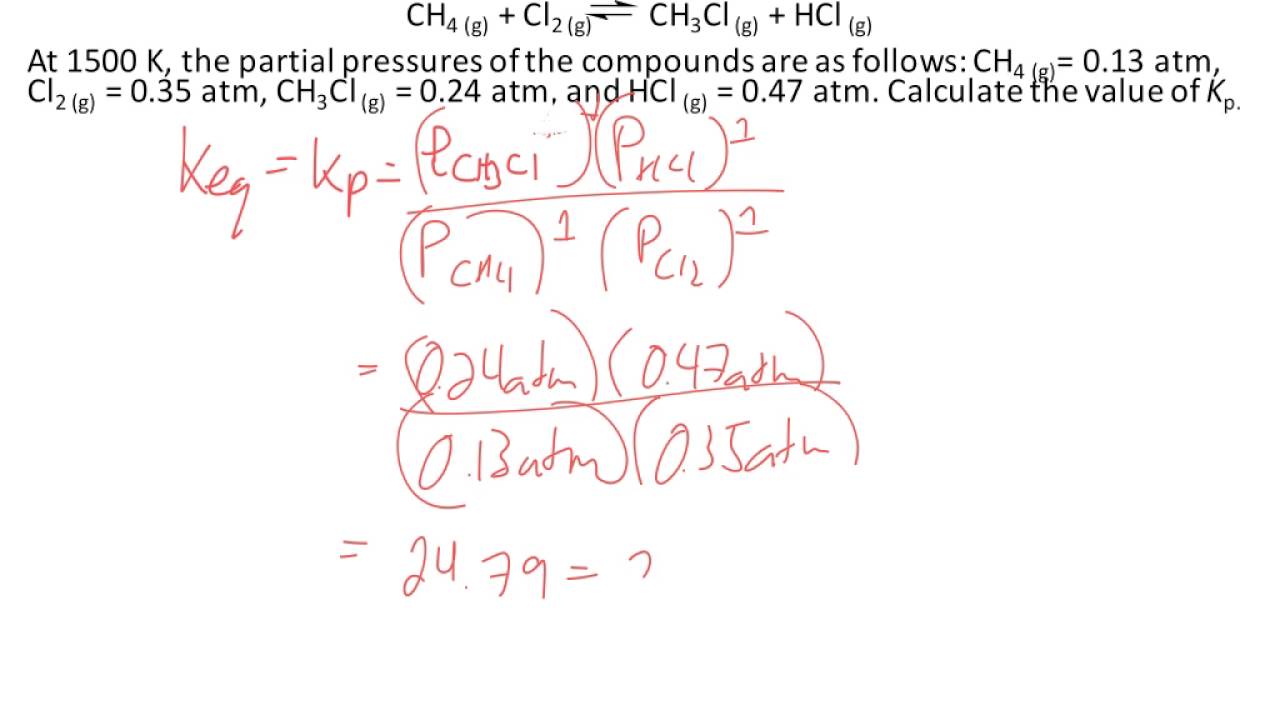 CH₄ (g) + Cl₂ (g) ⇌ CH₃Cl (g) + HCl (g)
At 1500 K, the partial pressures of the compounds are as follows: CH₄ (g)= 0.13 atm,
Cl₂ (g) = 0.35 atm, CH₃Cl (g) = 0.24 atm, and HCl (g) = 0.47 atm. Calculate the value of Kp.
Keq = Kp = (PCH3Cl)(PHCl)¹
(PCH4)¹ (PCl2)¹
= (0.24atm)(0.47atm)
(0.13atm)(0.35atm)
= 24.79 = 2